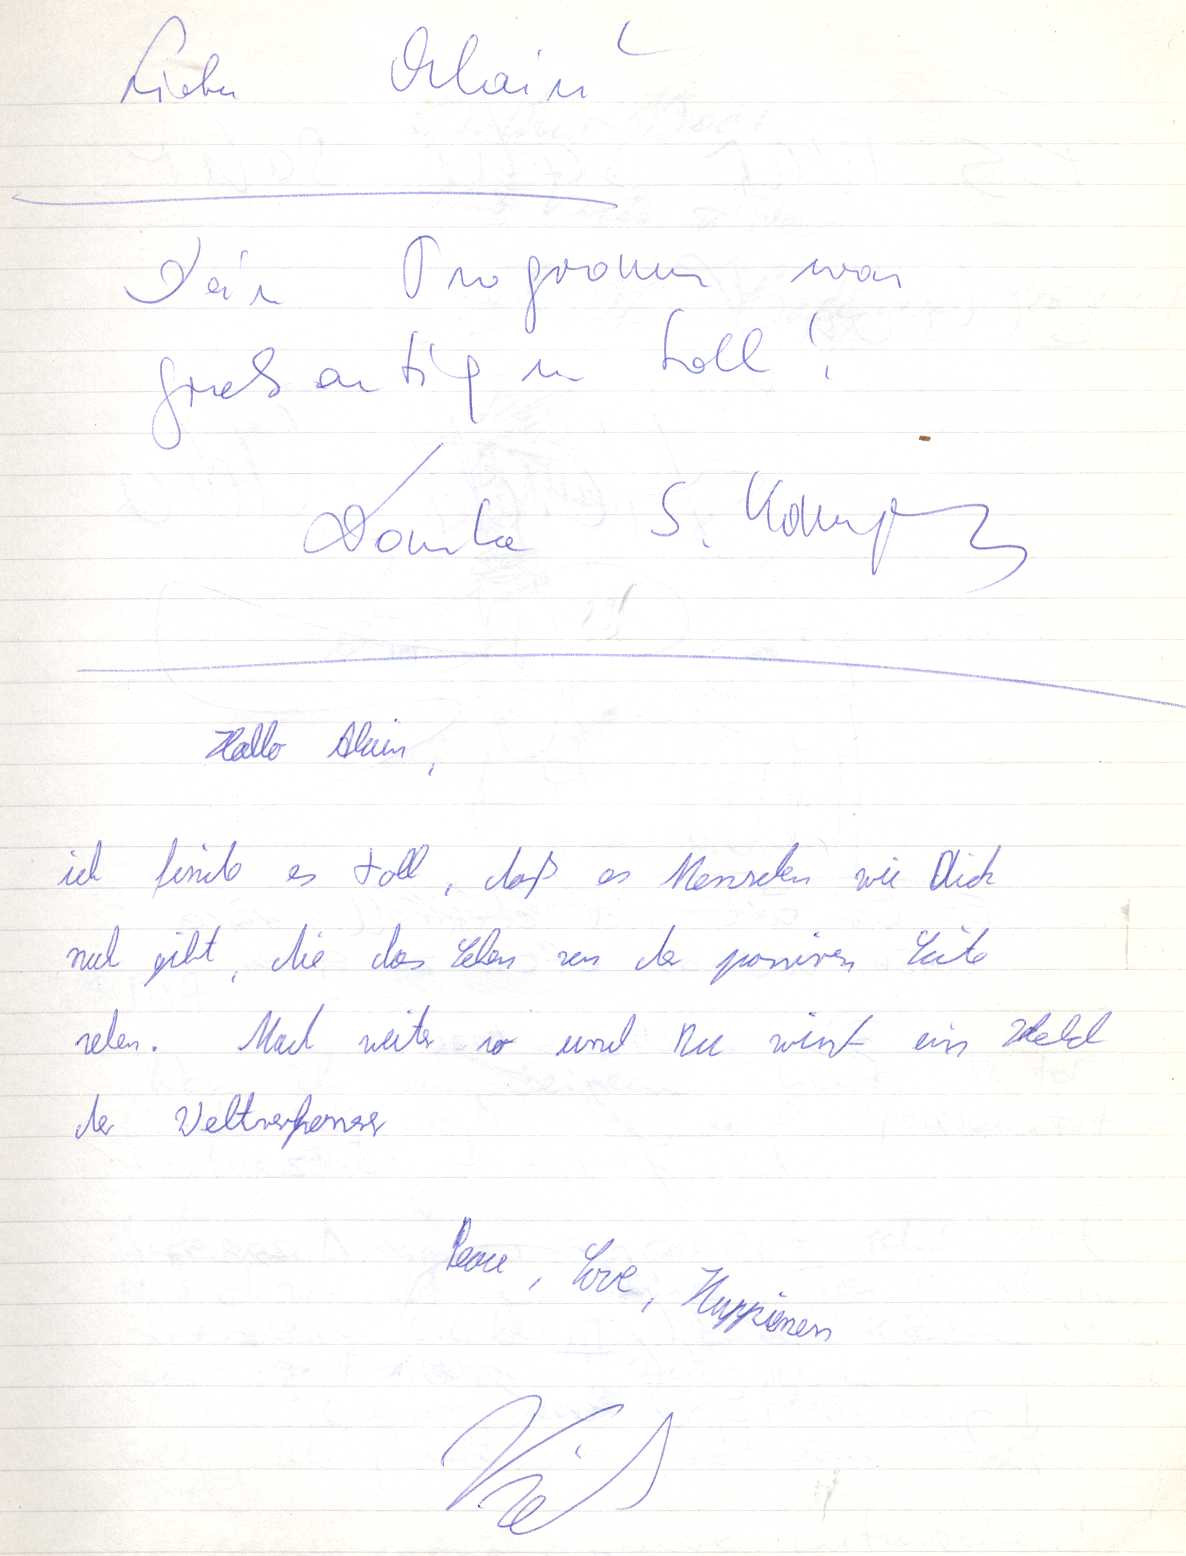 Lieber Alain!
Dein Programm war
großartig u toll!
Danke S. 
Hallo Alain,
ich finde es toll, daß es Menschen wie Dich
noch gibt, die das Leben von der positiven Seite
sehen. Mach weiter so und Du wirst ein Held
der Weltverbesserer
Peace, Love, Happiness